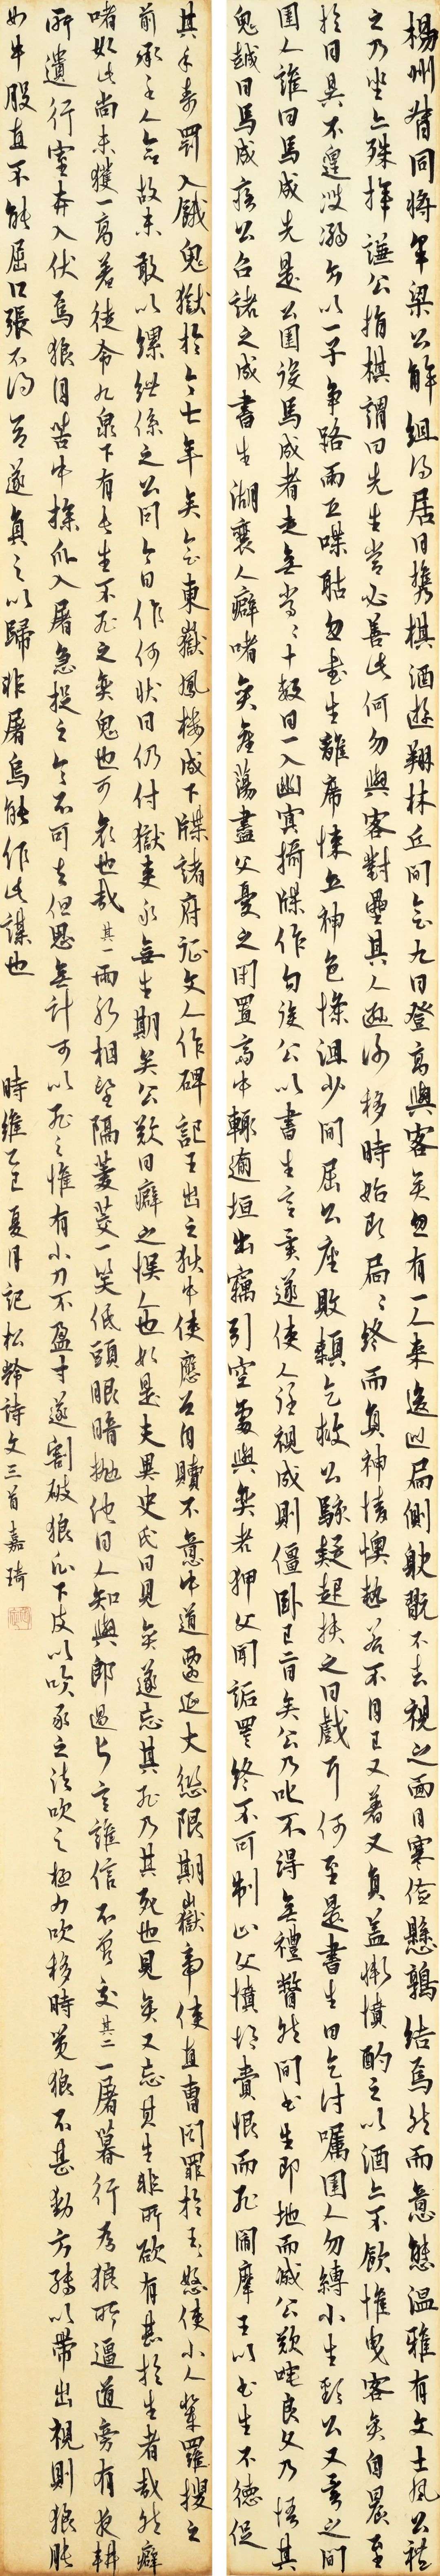 楊州督同將軍梁公解組鄉居日攜棋酒遊翔林丘間會九日登高與客弈忽有一人來逡巡局側耽翫不去視之面目寒儉懸鶉結焉然而意態溫雅有文士風公禮
之乃坐亦殊撝謙公指棋謂曰先生當必善此何勿與客對壘其人遜謝移時始即局局終而負神情懊熱若不自已又著又負益慚憤酌之以酒亦不飲惟曳客弈自晨至
於日昃不遑溲溺方以一子爭路兩互喋聒忽書生離席悚立神色慘沮少間屈公座敗顙乞救公駭疑起扶之曰戲耳何至是書生曰乞付囑圉人勿縛小生頸公又異之問
圉人誰曰馬成先是公圉役馬成者走無常常十數日一入幽冥攝牒作勾役公以書生言異遂使人往視成則僵臥已二日矣公乃叱不得無禮瞥然間書生即地而滅公歎吒良久乃悟其
鬼越日馬成寤公召詰之成書生湖襄人癖嗜弈產蕩盡父憂之閉置齋中輒逾垣出竊引空處與弈者狎父聞詬詈終不可制止父憤悒齎恨而死閻摩王以書生不德促
其年壽罰入餓鬼獄於今七年矣會東嶽鳳樓成下牒諸府征文人作碑記王出之獄中使應召自贖不意中道遷延大愆限期嶽帝使直曹問罪於王王怒使小人輩羅搜之
前承主人命故未敢以縲紲係之公問今日作何狀曰仍付獄吏永無生期矣公歎曰癖之誤人也如是夫異史氏曰見弈遂忘其死乃其死也見弈又忘其生非所欲有甚於生者哉然癖
嗜如此尚未獲一高著徒令九泉下有長生不死之弈鬼也可哀也哉 其一 兩船相望隔菱茭一笑低頭眼暗拋他日人知與郎遇片言誰信不曾交 其二 一屠暮行為狼所逼道旁有夜耕
所遺行室奔入伏焉狼自苫中探爪入屠急捉之令不可去但思無計可以死之惟有小刀不盈寸遂割破狼爪下皮以吹豕之法吹之極力吹移時覺狼不甚動方縛以帶出視則狼脹
如牛股直不能屈口張不得合遂負之以歸非屠烏能作此謀也 時維乙巳夏月記松齡詩文三首 嘉琦